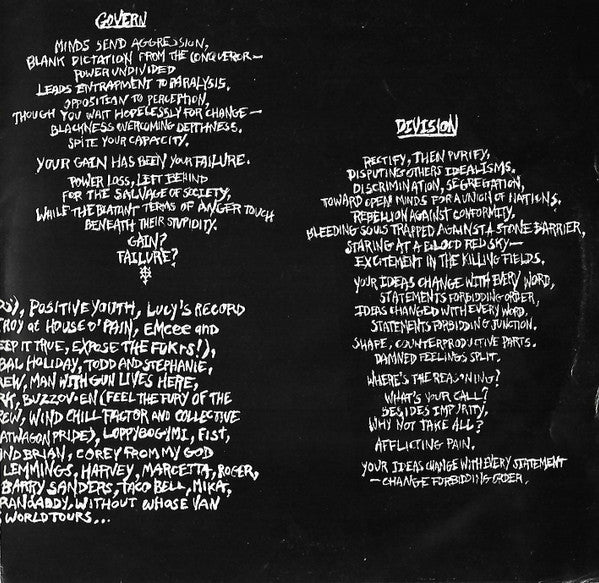 GOVERN
MINDS SEND AGGRESSION,
BLANK DICTATION FROM THE CONQUEROR—
POWER UNDIVIDED
LEADS ENTRAPMENT TO PARALYSIS.
OPPOSITION TO PERCEPTION,
THOUGH YOU WAIT HOPELESSLY FOR CHANGE—
BLACHNESS OVERCOMING DEPTHNESS.
SPITE YOUR CAPACITY.
YOUR GAIN HAS BEEN YOUR FAILURE.
POWER LOSS, LEFT BEHIND
FOR THE SALVAGE OF SOCIETY,
WHILE THE BLATANT TERMS OF ANGER TOUCH
BENEATH THEIR STUPIDITY.
GAIN?
FAILURE?
DS), POSITIVE YOUTH, LUCY'S RECORD
TROY at HOUSE O' PAIN, EMCEE and
EEP IT TRUE, EXPOSE THE FUKRS!),
BAL HOLIDAY, TODD AND STEPHANIE,
REW, MAN WITH GUN LIVES HERE,
RK, BUZZOV•EN (FEEL THE FURY OF THE
REW, WIND CHILL FACTOR AND COLLECTIVE
ATWAGON PRIDE), LOPPYBOGYMI, FIST,
ND BRIAN, COREY FROM MY GOD
LEMMINGS, HARVEY, MARCETTA, ROGER,
BARRY SANDERS, TACO BELL, MIKA,
RANDADDY, WITHOUT WHOSE VAN
WORLD TOURS...
DIVISION
RECTIFY, THEN PURIFY,
DISPUTING OTHERS IDEALISMS.
DISCRIMINATION, SEGREGATION,
TOWARD OPEN MINDS FOR A UNION OF NATIONS.
REBELLION AGAINST CONFORMITY,
BLEEDING SOULS TRAPPED AGAINST A STONE BARRIER,
STARING AT A BLOOD RED SKY—
EXCITEMENT IN THE KILLING FIELDS.
YOUR IDEAS CHANGE WITH EVERY WORD,
STATEMENTS FORBIDDING ORDER,
IDEAS CHANGED WITH EVERY WORD.
STATEMENTS FORBIDDING JUNCTION.
SHAPE, COUNTERPRODUCTIVE PARTS.
DAMNED FEELINGS SPLIT.
WHERE'S THE REASONING?
WHAT'S YOUR CALL?
BESIDES IMPURITY,
WHY NOT TAKE ALL?
AFFLICTING PAIN.
YOUR IDEAS CHANGE WITH EVERY STATEMENT
—CHANGE FORBIDDING ORDER.